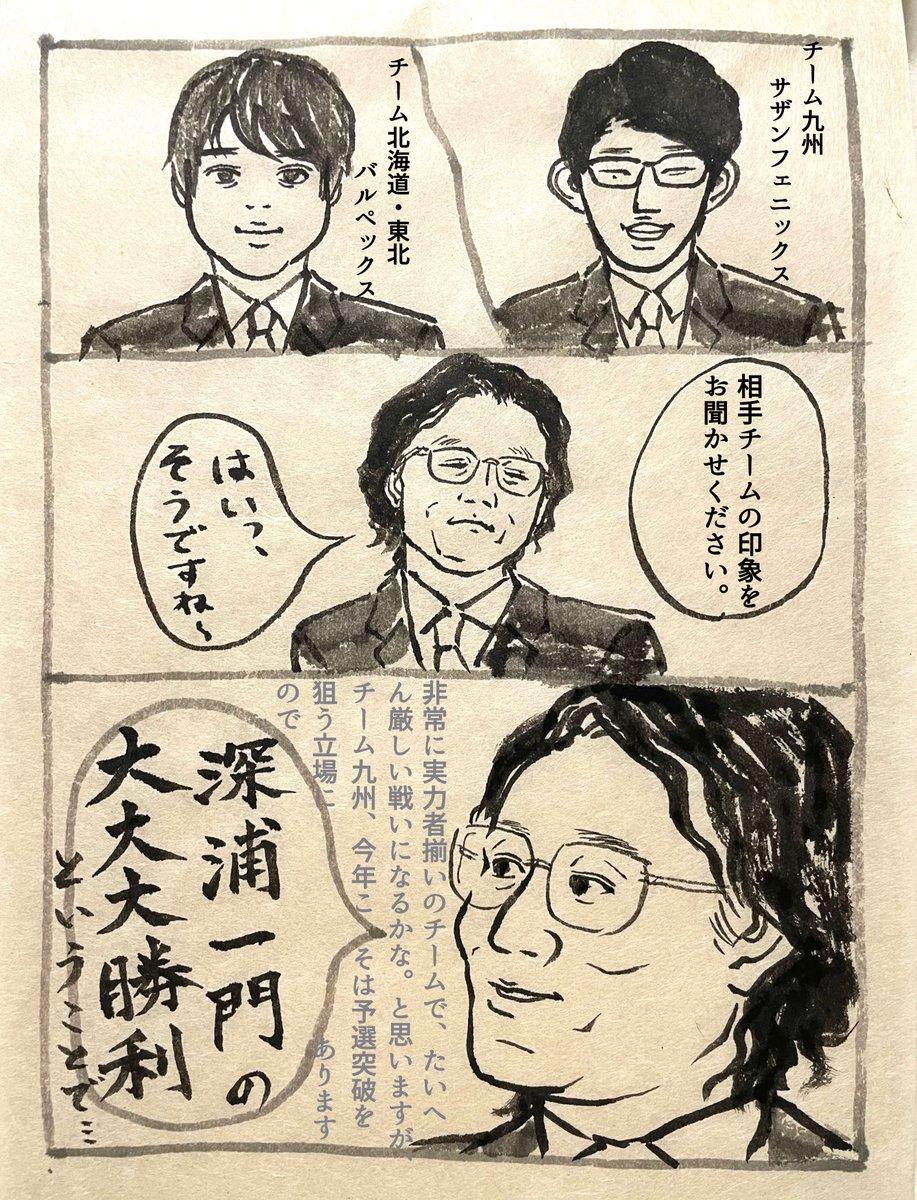 チーム九州
サザンフェニックス
チーム北海道・東北
バルペックス
相手チームの印象を
お聞かせください。
はいっ、
そうですね〜
非常に実力者揃いのチームで、たいへ
ん厳しい戦いになるかな。と思いますが、
チーム九州、今年こそは予選突破を
狙う立場に あります
ので
深浦一門の
大大大勝利
ということで…